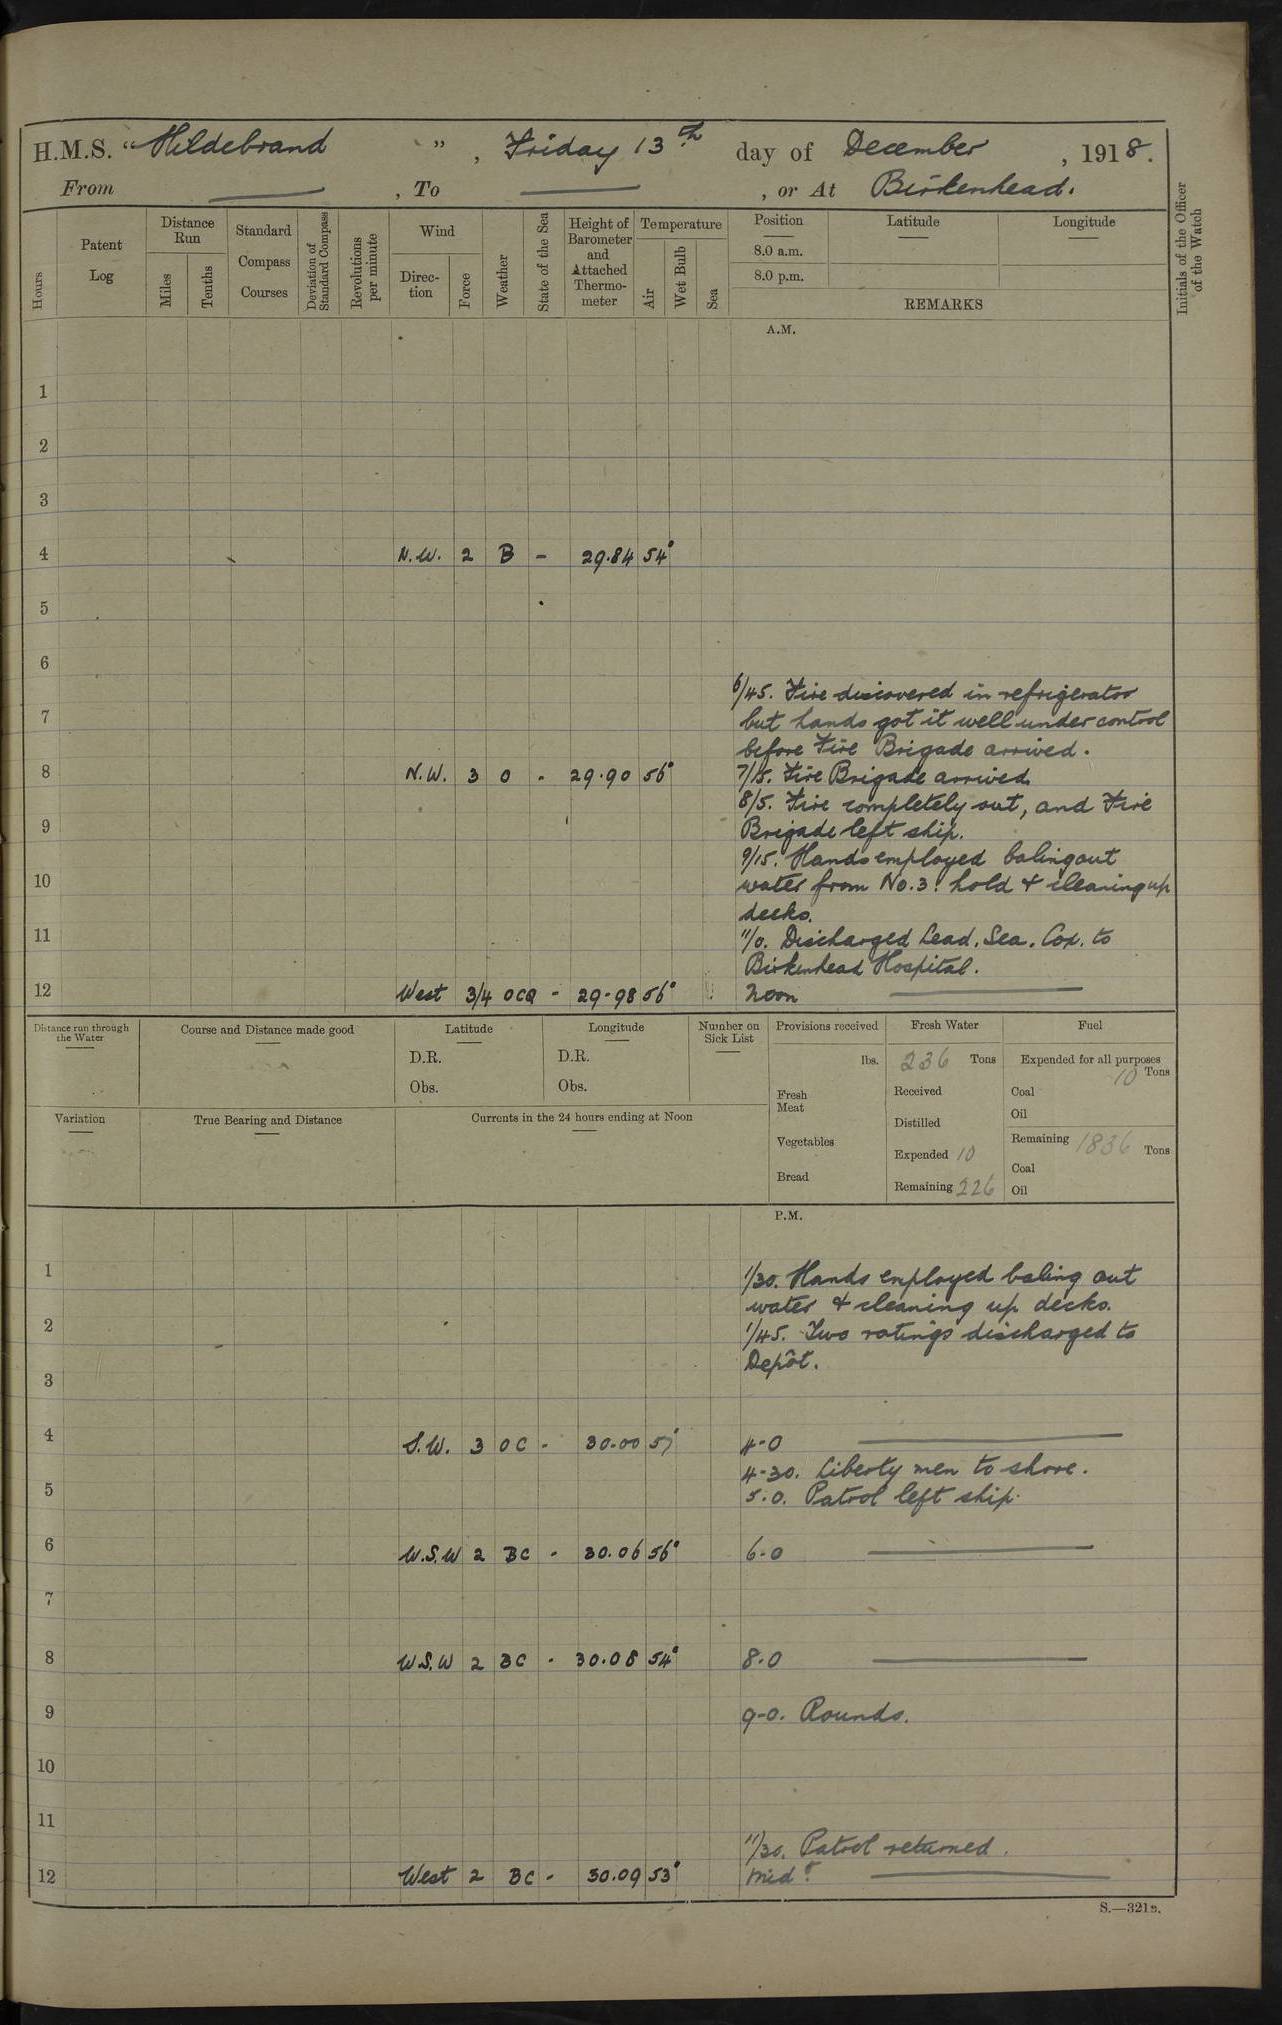 H.M.S. "Hildebrand", Friday 13th day of December, 1918.
From ———, To ———, or At Birkenhead.
Hours
Patent Log
Distance Run
Miles
Tenths
Standard Compass Courses
Deviation of Standard Compass
Revolutions per minute
Wind
Direction
Force
Weather
State of the Sea
Height of Barometer and Attached Thermometer
Temperature
Air
Wet Bulb
Sea
Position
8.0 a.m.
8.0 p.m.
Latitude
Longitude
REMARKS
Initials of the Officer of the Watch
A.M.
1
2
3
4 N.W. 2 B - 29.84 54°
5
6
6/45. Fire discovered in refrigerator
7 but hands got it well under control
before Fire Brigade arrived.
8 N.W. 3 O - 29.90 56° 7/15. Fire Brigade arrived.
8/5. Fire completely out, and Fire
9 Brigade left ship.
9/15. Hands employed baling out
10 water from No.3. hold & cleaning up
decks.
11 11/0. Discharged Lead. Sea. Cox. to
Birkenhead Hospital.
12 West 3/4 OCQ - 29.98 56° Noon ———
Distance run through the Water
Course and Distance made good
Latitude
D.R.
Obs.
Longitude
D.R.
Obs.
Number on Sick List
Provisions received
lbs.
Fresh Meat
Vegetables
Bread
Fresh Water
236 Tons
Received
Distilled
Expended 10
Remaining 226
Fuel
Expended for all purposes
10 Tons
Coal
Oil
Remaining 1836 Tons
Coal
Oil
Variation
True Bearing and Distance
Currents in the 24 hours ending at Noon
P.M.
1 1/30. Hands employed baling out
water & cleaning up decks.
2 1/45. Two ratings discharged to
Depôt.
3
4 S.W. 3 OC - 30.00 57° 4-0 ———
4-30. Liberty men to shore.
5 5.0. Patrol left ship.
6 W.S.W 2 BC - 30.06 56° 6-0 ———
7
8 W.S.W 2 BC - 30.08 54° 8.0 ———
9 9-0. Rounds.
10
11
11/30. Patrol returned.
12 West 2 BC - 30.09 53° Midt. ———
S.—321B.